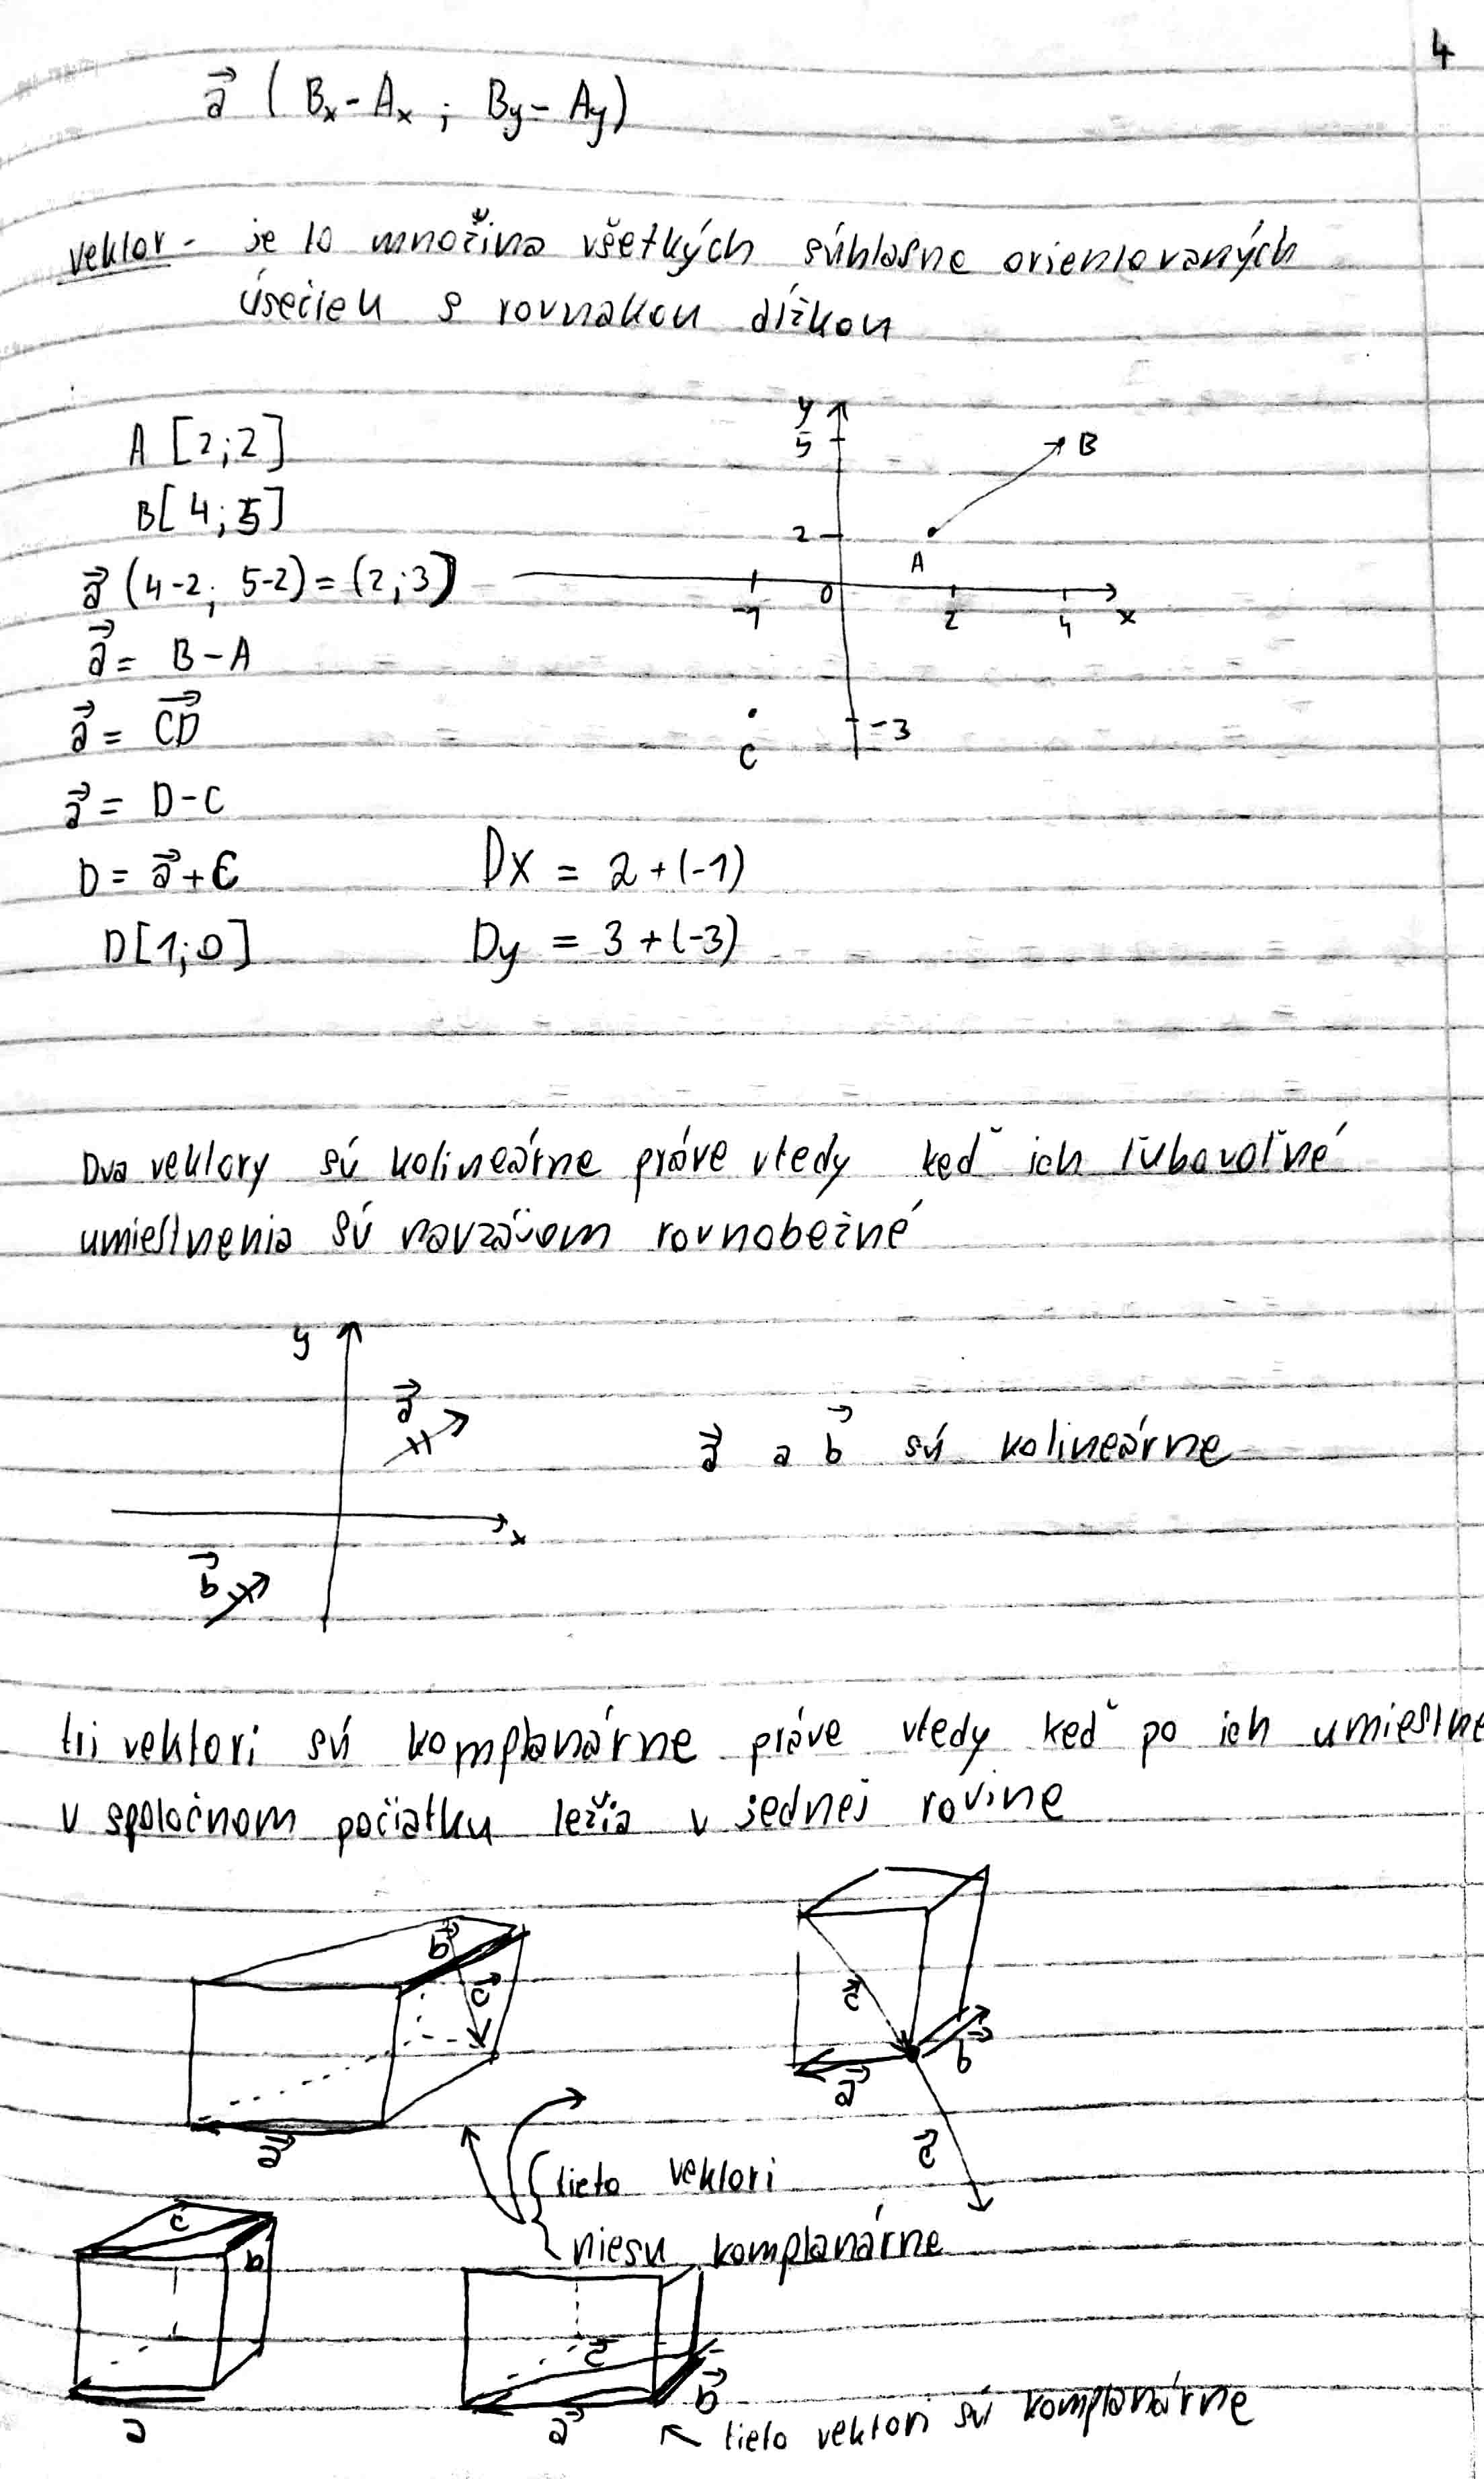 4
a⃗ ( Bx - Ax ; By - Ay )
vektor - je to množina všetkých súhlasne orientovaných
úsečiek s rovnakou dĺžkou
A [2;2]
B[4;5]
a⃗ (4-2; 5-2) = (2;3)
a⃗ = B - A
a⃗ = CD⃗
a⃗ = D - C
D = a⃗ + C
D[1;0]
Dx = 2 + (-1)
Dy = 3 + (-3)
y
5
B
2
A
-1
0
2
4
x
-3
C
Dva vektory sú kolineárne práve vtedy keď ich ľubovoľné
umiestnenia sú navzájom rovnobežné
y
a⃗
x
b⃗
a⃗ a b⃗ sú kolineárne
tri vektori sú komplanárne práve vtedy keď po ich umiestne
v spoločnom počiatku ležia v jednej rovine
b⃗
c⃗
a⃗
c⃗
b⃗
a⃗
c⃗
tieto vektori
niesu komplanárne
c
b
a
c⃗
b⃗
a⃗
tieto vektori sú komplanárne